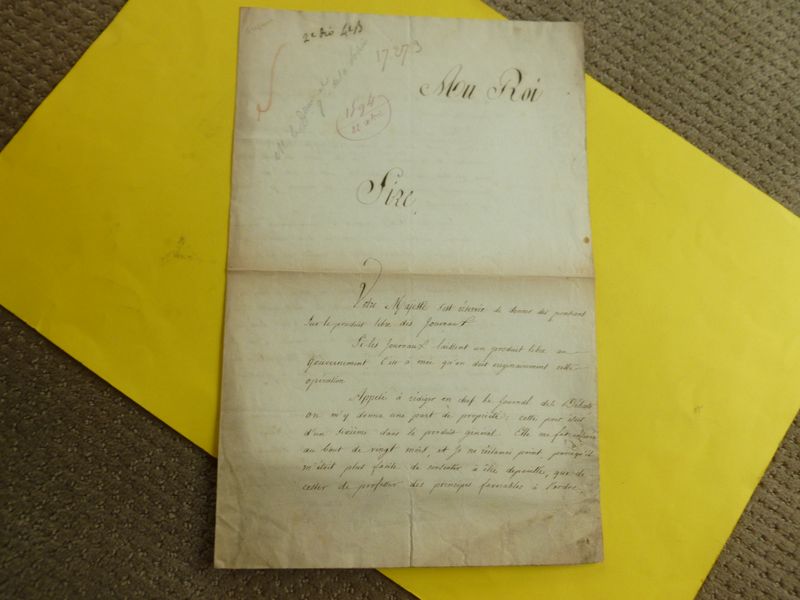 17273
1894
Au Roi
Sire,
Votre Majesté s'est réservée de donner des pensions
sur le produit libre des Journaux
Si les Journaux laissent un produit libre au
Gouvernement c'est à moi qu'on doit originairement cette
opération
Appelé à rédiger en chef le Journal des Débats
on m'y donna une part de propriété; cette part était
d'un sixième dans le produit general. Elle me fut
au bout de vingt mois, et Je ne réclamai point, parcequ'il
m'était plus facile de consentir à être depouillé, que de
cesser de professer des principes favorables à l'ordre,